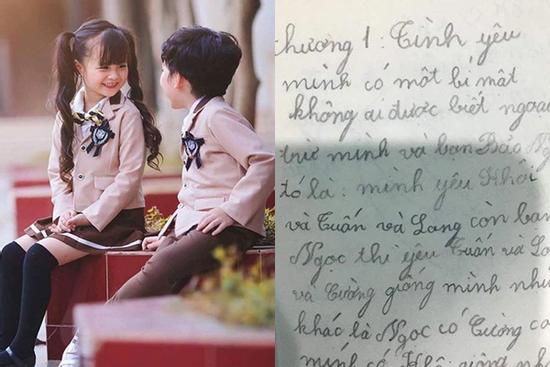 chương 1: Tình yêu
mình có một bí mật
không ai được biết ngoại
trừ mình và bạn Bảo Ng
đó là: mình yêu Khôi
và Tuấn và Long còn bạn
Ngọc thì yêu Tuấn và Lo
và Tường giống mình như
khác là Ngọc có Tường cò
mình có Khôi giống nh